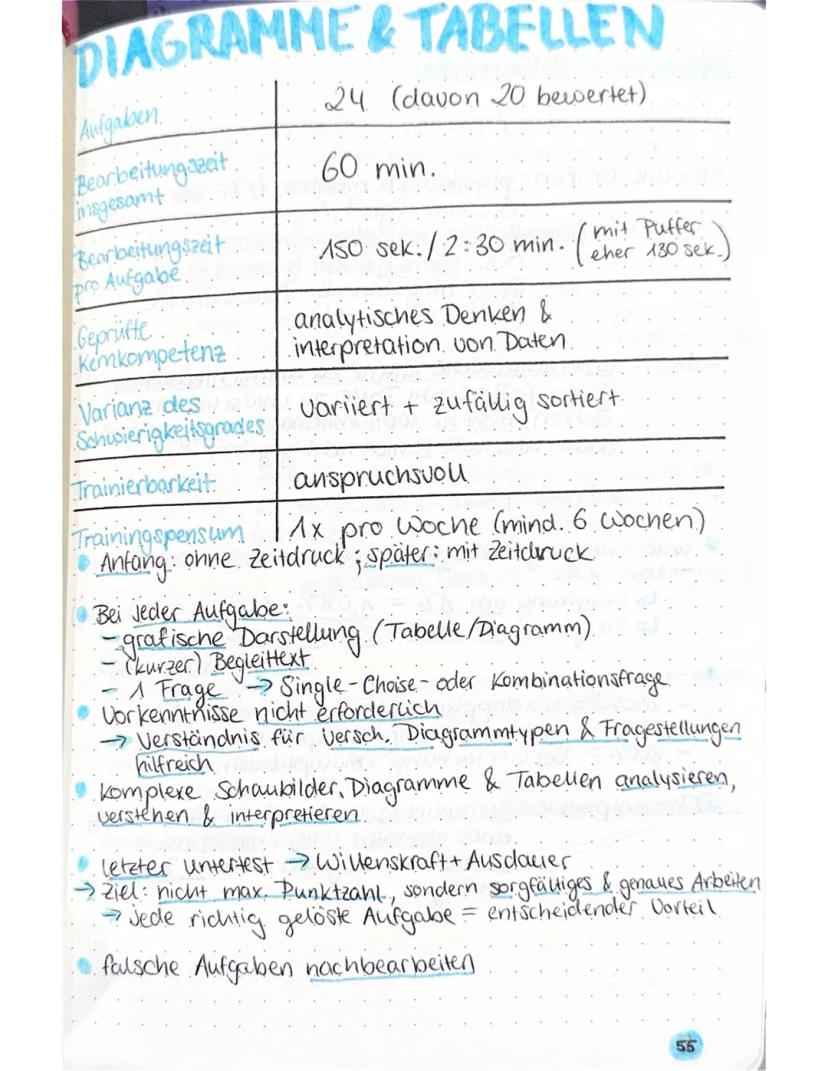 DIAGRAMME & TABELLEN
Aufgaben
24 (davon 20 bewertet)
Bearbeitungszeit
insgesamt
60 min.
Bearbeitungszeit
pro Aufgabe
150 sek. / 2:30 min. (mit Puffer
eher 130 sek.)
Geprüfte
Kernkompetenz
analytisches Denken &
interpretation von Daten
Varianz des
Schwierigkeitsgrades
variiert + zufällig sortiert
Trainierbarkeit
anspruchsvoll
Trainingspensum
1x pro Woche (mind. 6 Wochen)
• Anfang: ohne Zeitdruck; später: mit Zeitdruck
• Bei jeder Aufgabe:
- grafische Darstellung (Tabelle/Diagramm)
- (kurzer) Begleittext
- 1 Frage → Single-Choise- oder Kombinationsfrage
• Vorkenntnisse nicht erforderlich
→ Verständnis für versch. Diagrammtypen & Fragestellungen
hilfreich
• komplexe Schaubilder, Diagramme & Tabellen analysieren,
verstehen & interpretieren
• letzter untertest → Willenskraft + Ausdauer
→ Ziel: nicht max. Punktzahl, sondern sorgfältiges & genaues Arbeiten
→ jede richtig gelöste Aufgabe = entscheidender Vorteil
• falsche Aufgaben nachbearbeiten
55